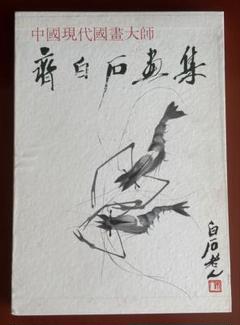 中國現代國畫大師
齊白石画集
白石老人